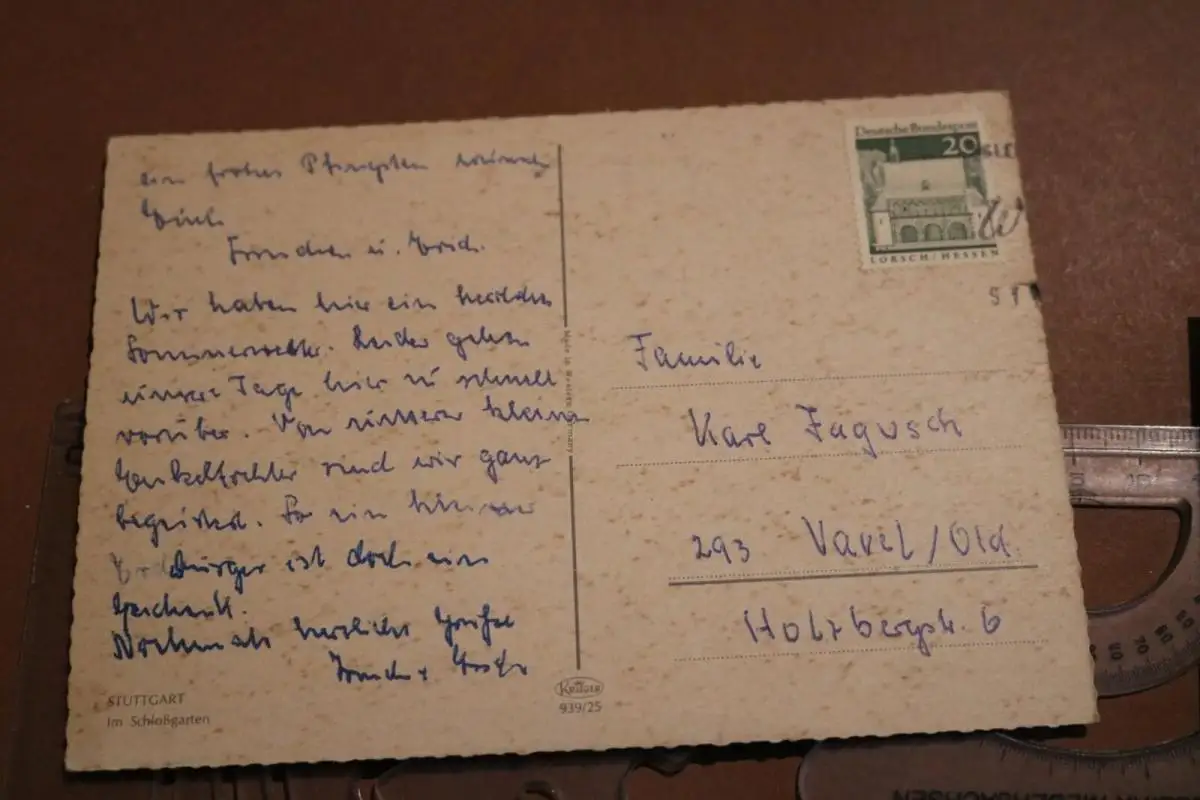 ein frohes Pfingsten wünscht
Euch
u. Erich.
Wir haben hier ein herrliches
Sommerwetter. Leider gehen
unsere Tage hier zu schnell
vorüber. Von unserer kleinen
Enkeltochter sind wir ganz
begeistert. So ein kleiner
ist doch ein
Geschenk.
Nochmals herzliche Grüße
STUTTGART
Im Schloßgarten
Made in Western Germany
KRÜGER
939/25
Deutsche Bundespost
20
LORSCH/HESSEN
Familie
Karl Fagusch
293 Varel/Old.
Holzbergstr. 6